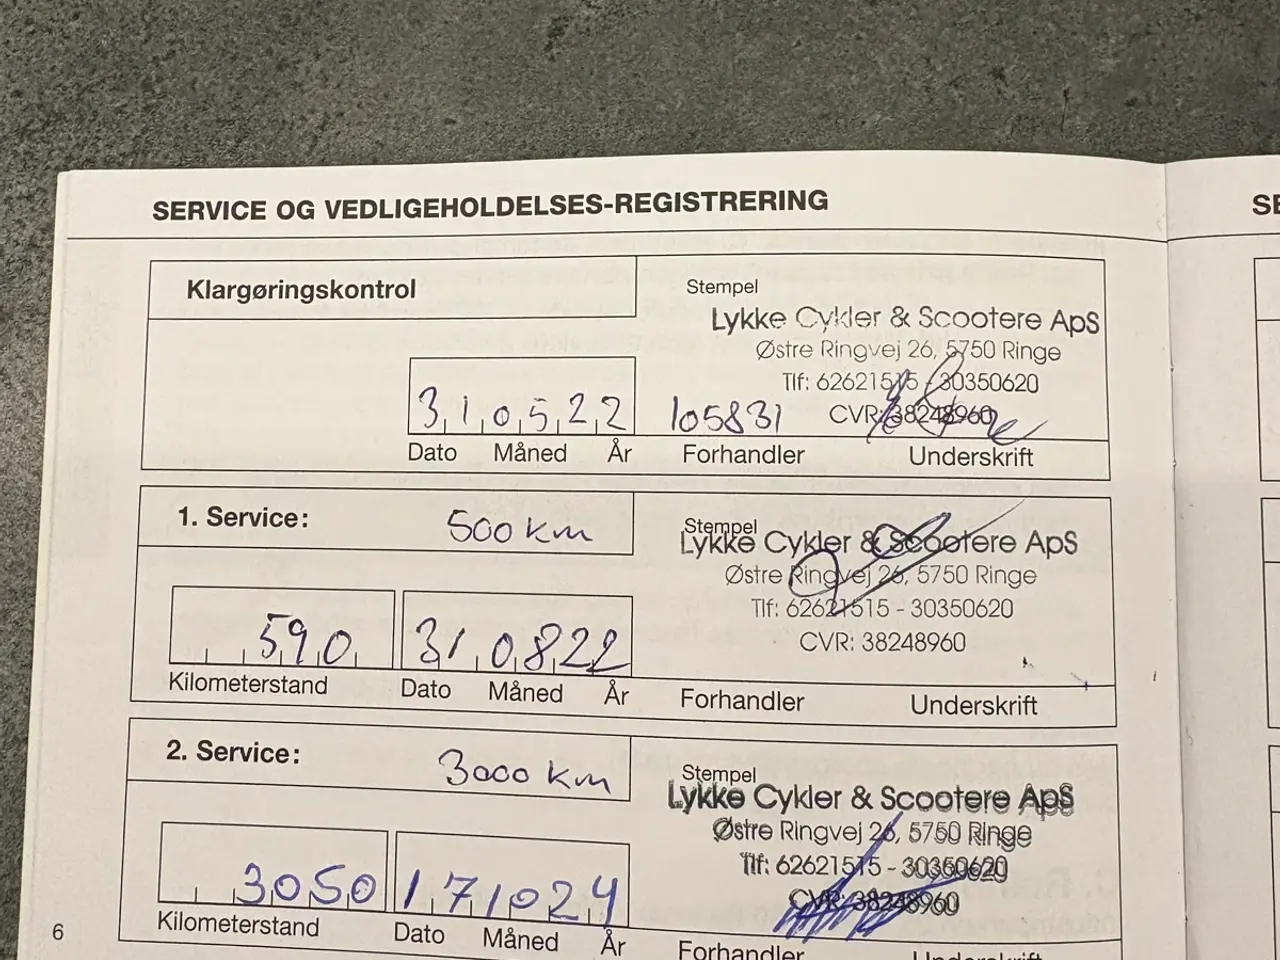 SERVICE OG VEDLIGEHOLDELSES-REGISTRERING
SE
Klargøringskontrol
Stempel
Lykke Cykler & Scootere ApS
Østre Ringvej 26, 5750 Ringe
Tlf: 62621515 - 30350620
CVR: 38248960
310522
105831
Dato Måned År Forhandler Underskrift
1. Service: 500 km
Stempel
Lykke Cykler & Scootere ApS
Østre Ringvej 26, 5750 Ringe
Tlf: 62621515 - 30350620
CVR: 38248960
590 310822
Kilometerstand Dato Måned År Forhandler Underskrift
2. Service: 3000 km
Stempel
Lykke Cykler & Scootere ApS
Østre Ringvej 26, 5750 Ringe
Tlf: 62621515 - 30350620
CVR: 38248960
3050 171024
Kilometerstand Dato Måned År Forhandler Underskrift
6